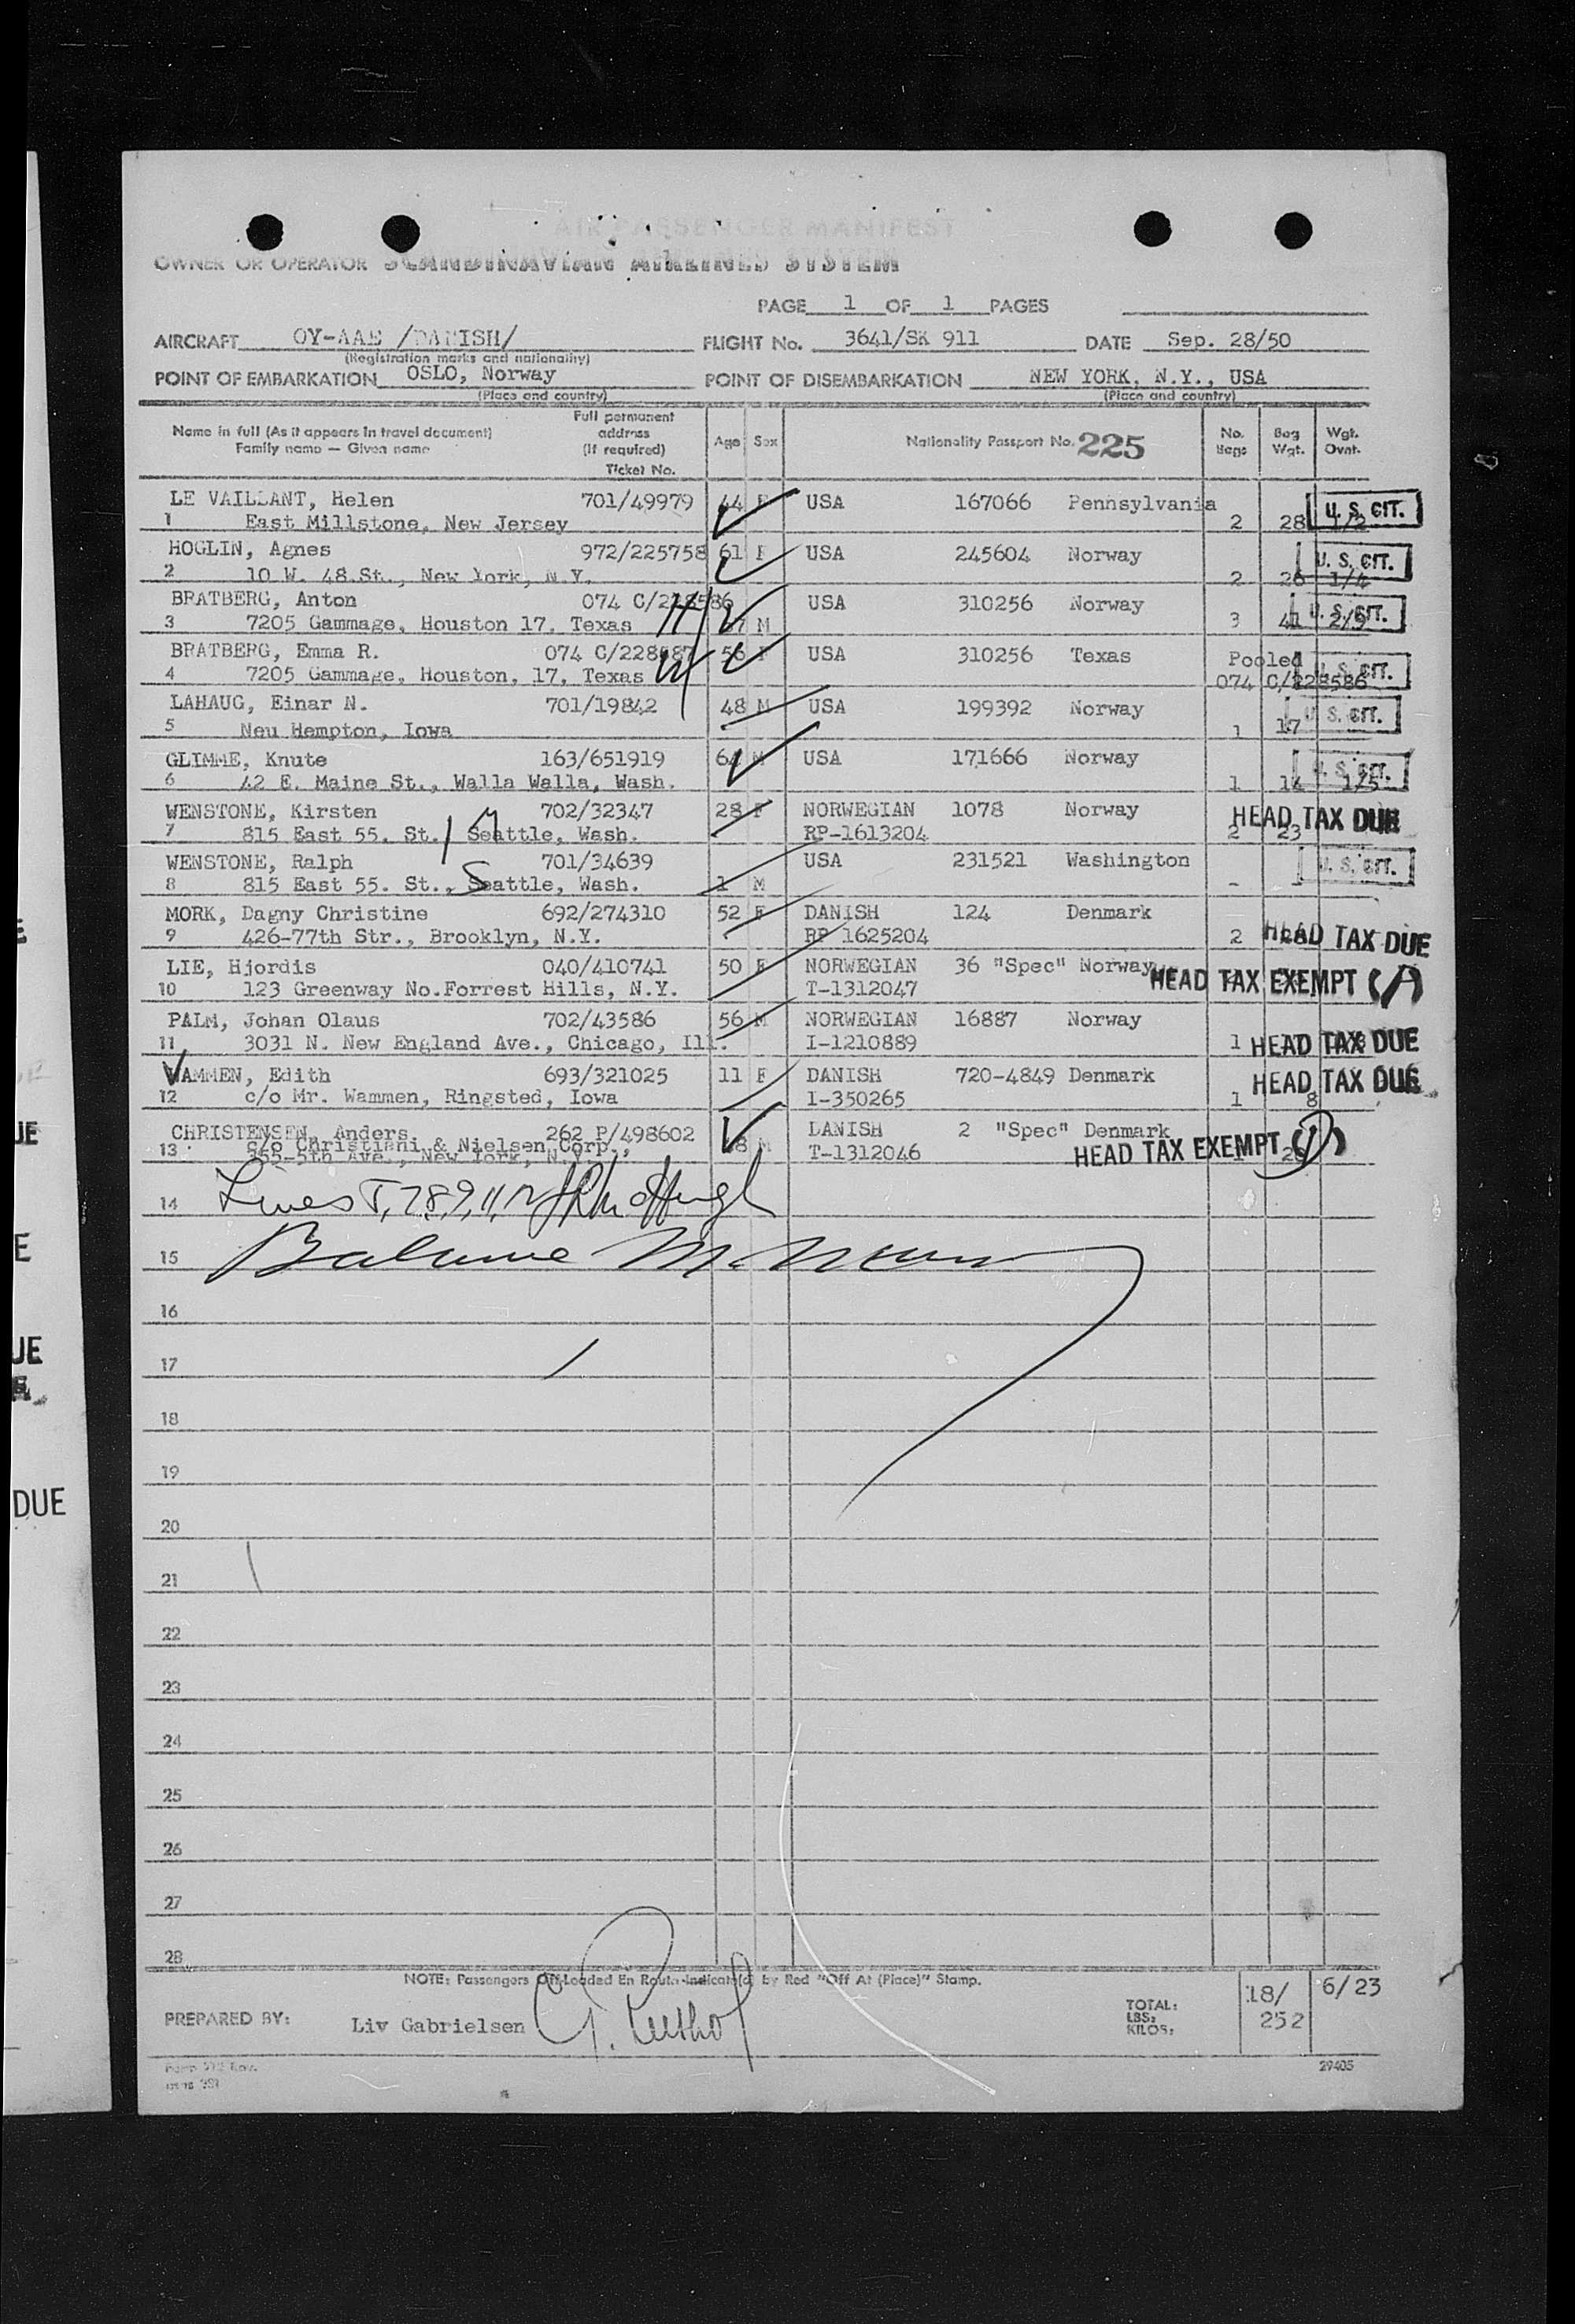 AIR PASSENGER MANIFEST
OWNER OR OPERATOR SCANDINAVIAN AIRLINES SYSTEM
PAGE 1 OF 1 PAGES
AIRCRAFT OY-AAE /DANISH/ FLIGHT No. 3641/SK 911 DATE Sep. 28/50
(Registration marks and nationality)
POINT OF EMBARKATION OSLO, Norway POINT OF DISEMBARKATION NEW YORK, N.Y., USA
(Place and country) (Place and country)
Name in full (As it appears in travel document) Family name — Given name Full permanent address (If required) Ticket No. Age Sex Nationality Passport No. 225 No. Bags Bag Wgt. Wgt. Ovnt.
LE VAILLANT, Helen 701/49979 44 F USA 167066 Pennsylvania U. S. CIT.
1 East Millstone, New Jersey 2 28 1/2
HOGLIN, Agnes 972/225758 61 F USA 245604 Norway U. S. CIT.
2 10 W. 48 St., New York, N.Y. 2 26 1/4
BRATBERG, Anton 074 C/228586 USA 310256 Norway U. S. CIT.
3 7205 Gammage, Houston 17, Texas M 3 41 2/9
BRATBERG, Emma R. 074 C/228587 56 F USA 310256 Texas Pooled U. S. CIT.
4 7205 Gammage, Houston, 17, Texas 074 C/228586
LAHAUG, Einar N. 701/19842 48 M USA 199392 Norway U. S. CIT.
5 Neu Hempton, Iowa 1 17
GLIMME, Knute 163/651919 64 M USA 171666 Norway U. S. CIT.
6 42 E. Maine St., Walla Walla, Wash. 1 14 1/5
WENSTONE, Kirsten 702/32347 28 F NORWEGIAN 1078 Norway HEAD TAX DUE
7 815 East 55. St., Seattle, Wash. RP-1613204 2 23
WENSTONE, Ralph 701/34639 USA 231521 Washington U. S. CIT.
8 815 East 55. St., Seattle, Wash. 1 M - -
MORK, Dagny Christine 692/274310 52 F DANISH 124 Denmark
9 426-77th Str., Brooklyn, N.Y. RP 1625204 2 HEAD TAX DUE
LIE, Hjordis 040/410741 50 F NORWEGIAN 36 "Spec" Norway
10 123 Greenway No.Forrest Hills, N.Y. T-1312047 HEAD TAX EXEMPT
PALM, Johan Olaus 702/43586 56 M NORWEGIAN 16887 Norway
11 3031 N. New England Ave., Chicago, Ill. I-1210889 1 HEAD TAX DUE
WAMMEN, Edith 693/321025 11 F DANISH 720-4849 Denmark HEAD TAX DUE
12 c/o Mr. Wammen, Ringsted, Iowa I-350265 1 8
CHRISTENSEN, Anders 262 P/498602 M DANISH 2 "Spec" Denmark
c/o Christiani & Nielsen Corp.,
13 -5th Ave., New York, N.Y. T-1312046 HEAD TAX EXEMPT
14 Lines 5, 7, 8, 9, 11, 12
15
16
17
18
19
20
21
22
23
24
25
26
27
28
NOTE: Passengers Off-Loaded En Route Indicated by Red "Off At (Place)" Stamp.
PREPARED BY: Liv Gabrielsen TOTAL: LBS: KILOS: 18/ 252 6/23
29405
DUE